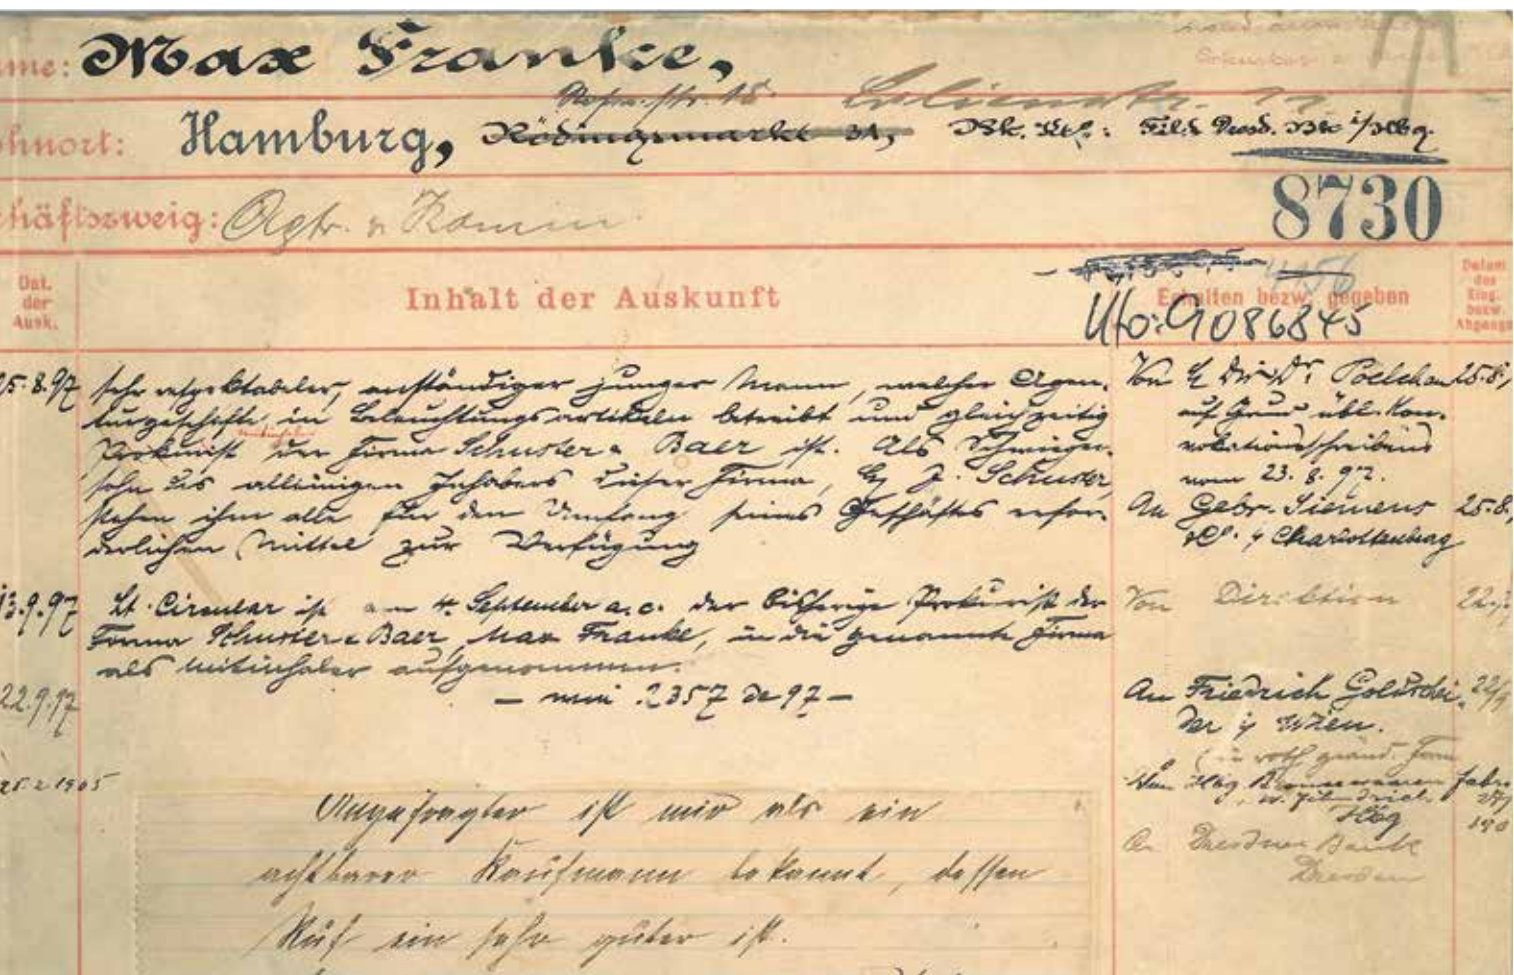 me: Max Franke,
hnort: Hamburg, Rödingsmarkt 31, Bk. Vbg.: Fil. d. Dresd. Bk i/Hbg.
häftszweig: Agtr. u Komm
8730
4156
Dat. der Ausk.
Inhalt der Auskunft
Erhalten bezw. gegeben
Datum des Eing. bezw. Abgangs
Ufo: 9086845
25.8.97 sehr respektabeler, anständiger junger Mann, welcher Agen-
turgeschäfte in Beleuchtungsartikeln betreibt und gleichzeitig
Prokurist der Firma Schuster & Baer ist. Als Schwieger-
sohn des alleinigen Inhabers dieser Firma, H. J. Schuster,
stehen ihm alle für den Umfang seines Geschäftes erfor-
derlichen Mittel zur Verfügung
Von Poelchau 25.8.
auf Grund übl. Kon-
vokationsschreibens
vom 23.8.97.
An Gebr. Siemens 25.8.
Charlottenburg
13.9.97 Lt. Circular ist am 4. September a.c. der bisherige Prokurist der
Firma Schuster & Baer, Max Franke, in die genannte Firma
als Mitinhaber aufgenommen.
Von Direktion
22.9.97 — 2357 de 97 —
An Friedrich Goldschei- 22/9
der i/ Wien.
25.2.1905
Angefragter ist mir als ein
achtbarer Kaufmann bekannt, dessen
Ruf ein sehr guter ist.
An Dresdner Bank
Dresden